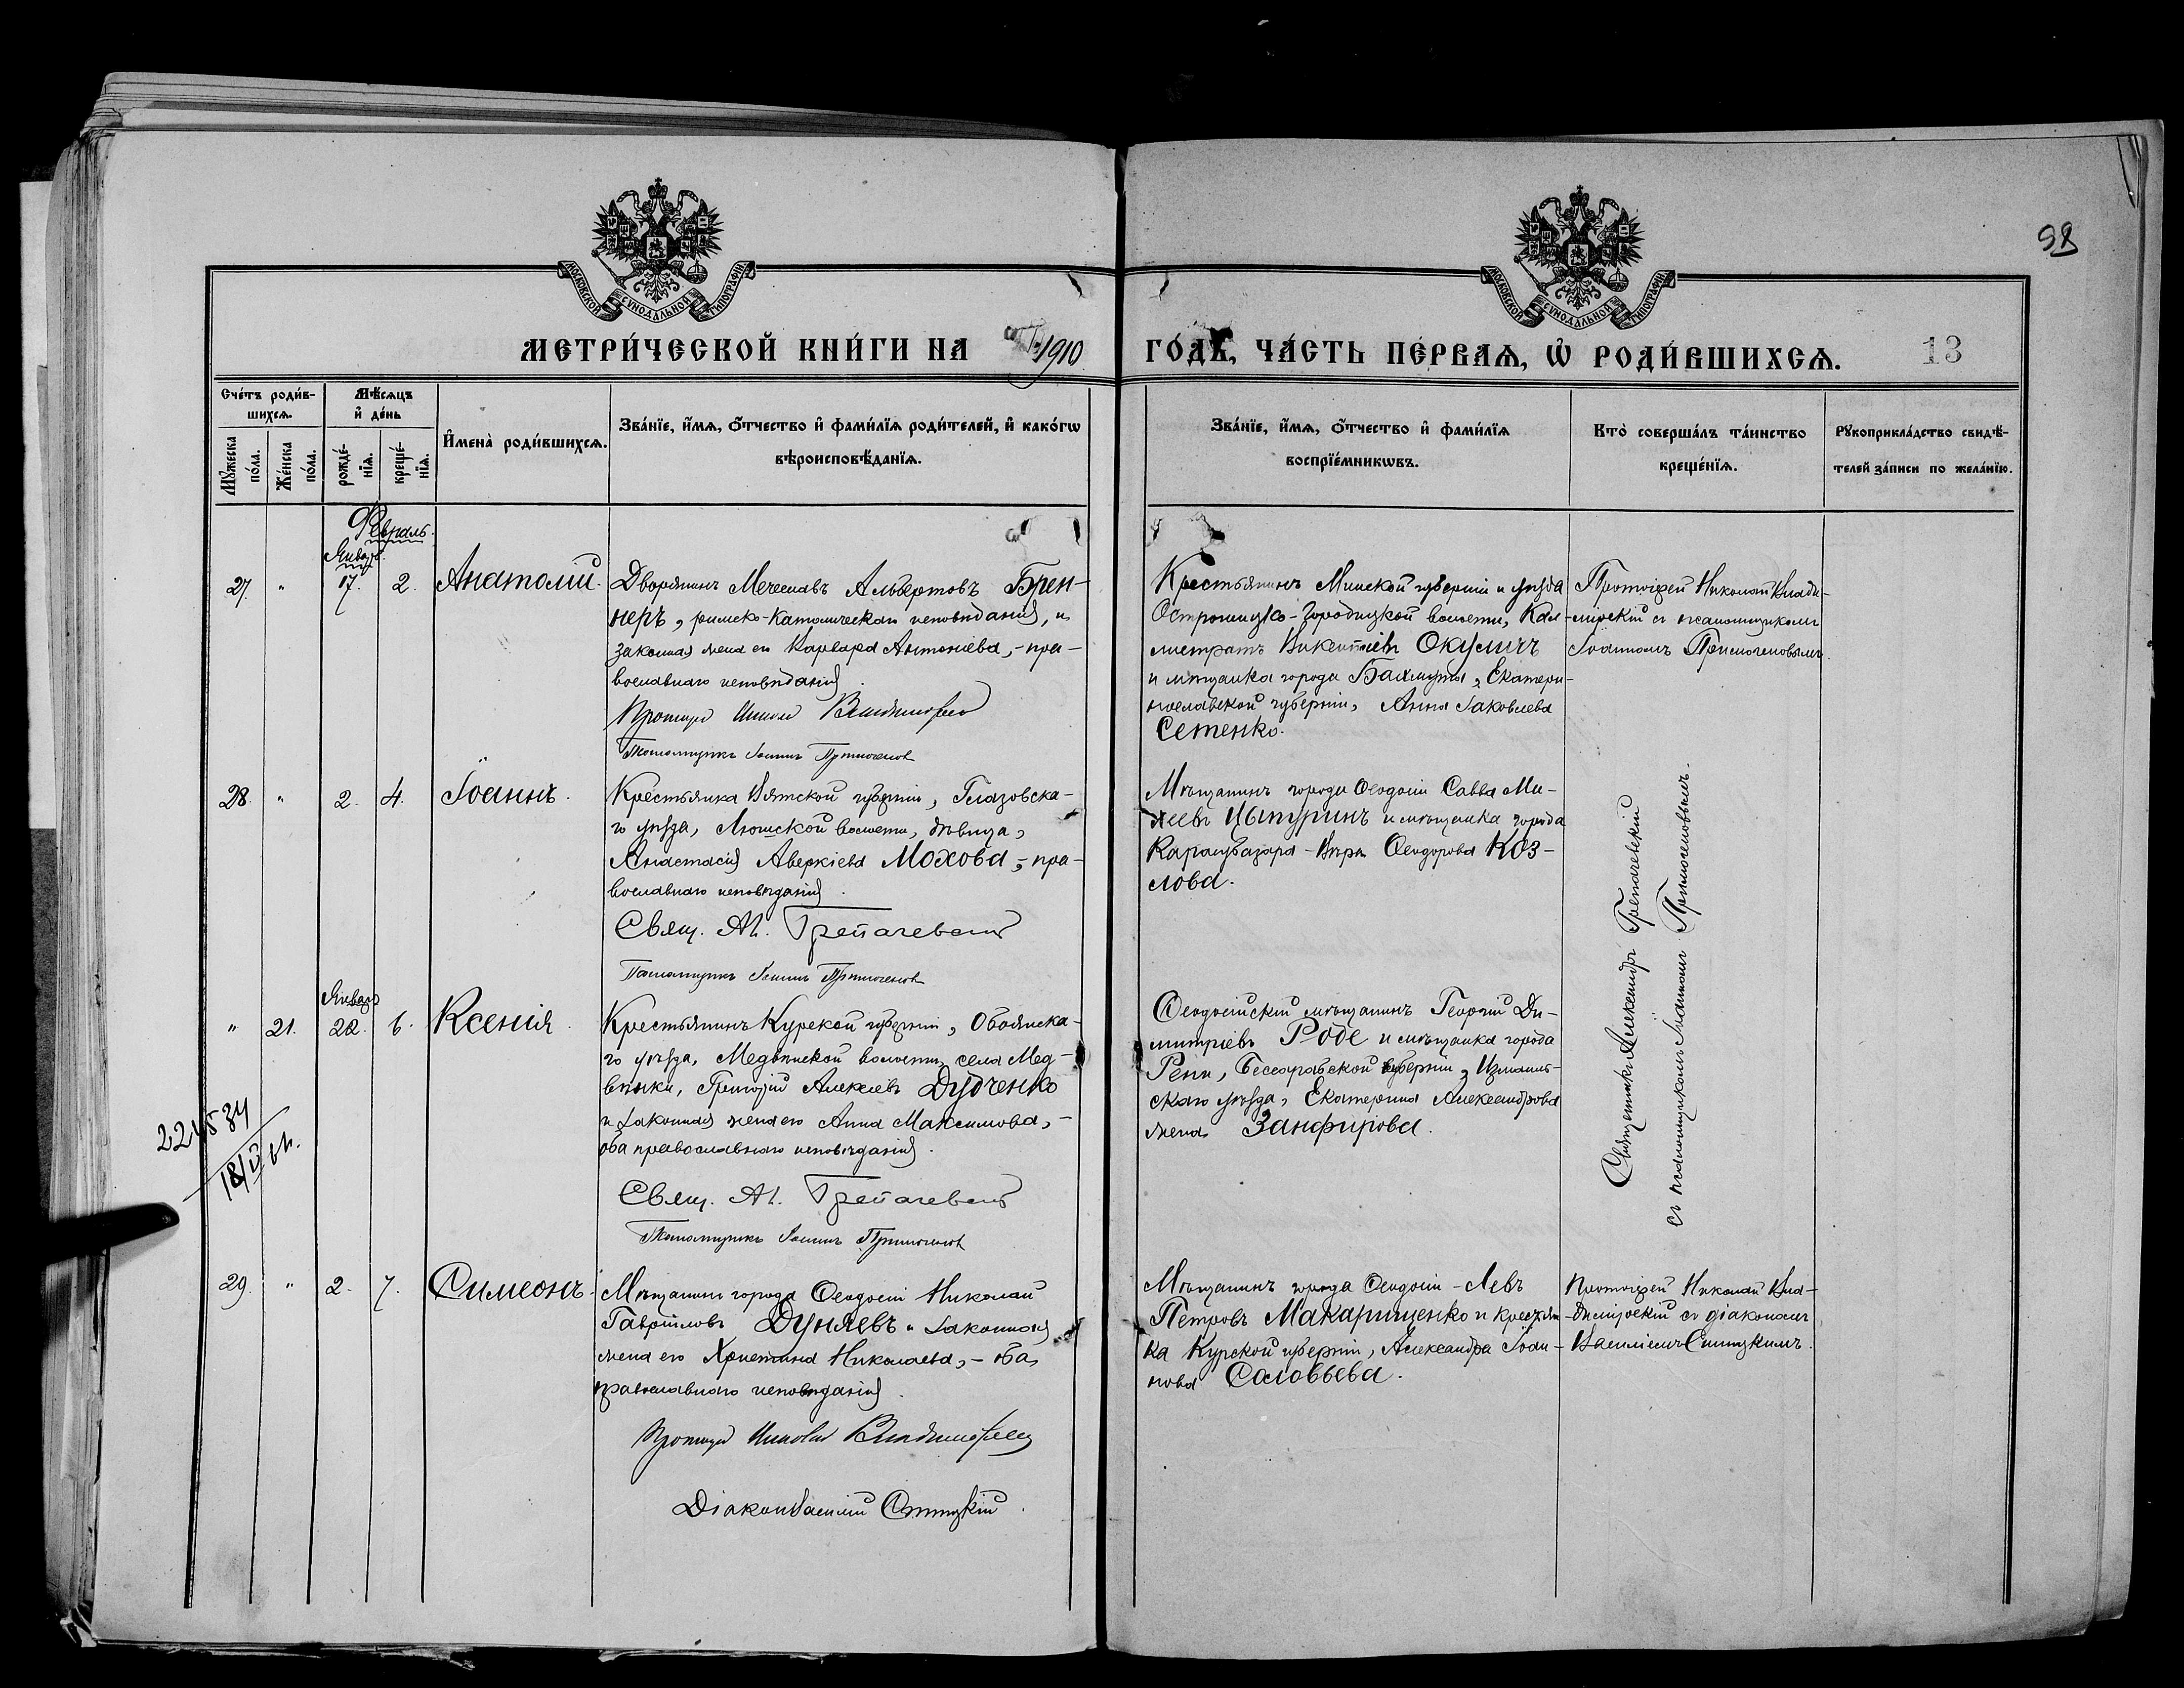 98
МОСКОВСКОЙ СѴНОДАЛЬНОЙ ТИПОГРАФІИ.
МОСКОВСКОЙ СѴНОДАЛЬНОЙ ТИПОГРАФІИ.
МЕТРИ́ЧЕСКОЙ КНИ́ГИ НА 1910 ГО́ДЪ, ЧА́СТЬ ПЕ́РВАЯ, Ѡ҆ РОДИ́ВШИХСЯ. 13
Сче́тъ роди́в-
шихся.
Мꙋ́жеска по́ла.
Же́нска по́ла.
Мѣ́сяцъ
и҆ де́нь
рожде́-
нїѧ.
креще́-
нїѧ.
И҆мена̀ роди́вшихся.
Зва́нїе, и҆́мѧ, ѻ҆́тчество и҆ фами́лїѧ роди́телей, и҆ како́гѡ
вѣроисповѣ́данїѧ.
Зва́нїе, и҆́мѧ, ѻ҆́тчество и҆ фами́лїѧ
воспрїе́мникѡвъ.
Кто̀ соверша́лъ та́инство
креще́нїѧ.
Рꙋкоприкла́дство свидѣ́-
телей за́писи по жела́нїю.
Февраль.
Январь.
27. " 17. 2. Анатолій.
Дворянинъ Мечеславъ Альбертовъ Брен-
неръ, римско-католическаго исповѣданія, и
законная жена его Варвара Антоніева, - пра-
вославнаго исповѣданія.
Протоіерей Николай Владимірскій
Псаломщикъ Іоаннъ Примогеновъ
Крестьянинъ Минской губерніи и уѣзда
Острошицко-Городецкой волости, Кал-
листратъ Викентіевъ Окуличъ
и мѣщанка города Бахмута, Екатери-
нославской губерніи, Анна Іаковлева
Сетенко.
Протоіерей Николай Влади-
мірскій съ псаломщикомъ
Іоанномъ Примогеновымъ.
28. " 2. 4. Іоаннъ.
Крестьянка Вятской губерніи, Глазовска-
го уѣзда, Люмской волости, дѣвица,
Анастасія Аверкіева Мохова, - пра-
вославнаго исповѣданія.
Свящ. Ал. Трепачевскій
Псаломщикъ Іоаннъ Примогеновъ
Мѣщанинъ города Ѳеодосіи Савва Ми-
хеевъ Цыпуринъ и мѣщанка города
Карасубазара - Вѣра Ѳеодорова Коз-
лова.
Священникъ Александръ Трепачевскій
съ псаломщикомъ Іоанномъ Примогеновымъ.
Январь
" 21. 22. 6. Ксенія.
Крестьянинъ Курской губерніи, Обоянска-
го уѣзда, Медвѣнской волости, села Мед-
вѣнки, Григорій Алексѣевъ Дудченко
и законная жена его Анна Максимова, -
оба православнаго исповѣданія.
Свящ. Ал. Трепачевскій
Псаломщикъ Іоаннъ Примогеновъ
Ѳеодосійскій мѣщанинъ Георгій Ди-
митріевъ Роде и мѣщанка города
Рени, Бессарабской губерніи, Измаиль-
скаго уѣзда, Екатерина Александрова
жена Занфирова.
29. " 2. 7. Симеонъ.
Мѣщанинъ города Ѳеодосіи Николай
Гавріиловъ Дуняевъ и законная
жена его Христина Николаева, - оба
православнаго исповѣданія.
Протоіерей Николай Владимірскій
Діаконъ Василій Синицкій.
Мѣщанинъ города Ѳеодосіи - Левъ
Петровъ Макарищенко и крестьян-
ка Курской губерніи, Александра Іоан-
нова Соловьева.
Протоіерей Николай Вла-
димірскій съ діакономъ
Василіемъ Синицкимъ.